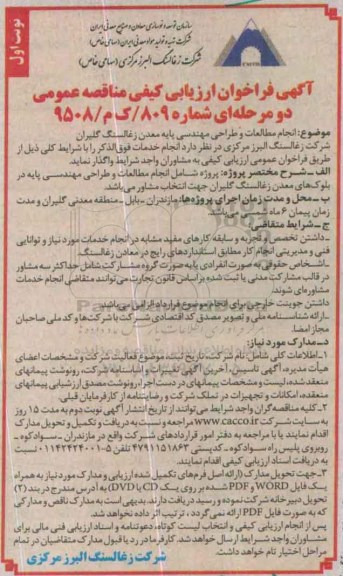 نوبت اول
سازمان توسعه و نوسازی معادن و صنایع معدنی ایران
شرکت تهیه و تولید مواد معدنی ایران (سهامی خاص)
شرکت زغالسنگ البرز مرکزی (سهامی خاص)
آگهی فراخوان ارزیابی کیفی مناقصه عمومی
دو مرحله‌ای شماره ۸۰۹/ک م/۹۵۰۸
موضوع: انجام مطالعات و طراحی مهندسی پایه معدن زغالسنگ گلیران
شرکت زغالسنگ البرز مرکزی در نظر دارد انجام خدمات فوق‌الذکر را با شرایط کلی ذیل از
طریق فراخوان عمومی ارزیابی کیفی به مشاوران واجد شرایط واگذار نماید.
الف - شرح مختصر پروژه: پروژه شامل انجام مطالعات و طراحی مهندسی پایه در
بلوک‌های معدن زغالسنگ گلیران جهت انتخاب مشاور می‌باشد.
ب - محل و مدت زمان اجرای پروژه‌ها: مازندران - بابل - منطقه معدنی گلیران و مدت
زمان پیمان ۶ ماه شمسی می‌باشد.
ج - شرایط متقاضی:
- داشتن تخصص و تجربه و سابقه کارهای مفید مشابه در انجام خدمات مورد نیاز و توانایی
فنی و مدیریتی انجام کار مطابق استانداردهای رایج در معادن زغالسنگ.
- اشخاص حقوقی به صورت انفرادی یا به صورت گروه مشارکت شامل حداکثر سه مشاور
در قالب مشارکت مدنی یا ثبت شده بر اساس قانون تجارت می‌توانند متقاضی انجام خدمات
مشاوره‌ای شوند.
داشتن جوینت خارجی برای انجام موضوع قرارداد الزامی می‌باشد.
- ارائه شناسنامه ملی و تصویر مصدق کد اقتصادی شرکت یا شرکت‌ها و کد ملی صاحبان
مجاز امضا.
د - مدارک مورد نیاز:
۱- اطلاعات کلی شامل: نام شرکت، تاریخ ثبت، موضوع فعالیت شرکت و مشخصات اعضای
هیأت مدیره، آگهی تاسیس، آخرین آگهی تغییرات و اساسنامه شرکت، رونوشت پیمانهای
منعقد شده، لیست و مشخصات پیمانهای در دست اجرا، رونوشت مصدق ارزشیابی پیمانهای
منعقده، امکانات و تجهیزات در تملک شرکت و رضایتنامه از کارفرمایان قبلی.
۲- کلیه مناقصه‌گران واجد شرایط می‌توانند از تاریخ انتشار آگهی نوبت دوم به مدت ۱۵ روز
به سایت شرکت www.cacco.ir مراجعه و نسبت به دریافت و تکمیل و تحویل مدارک
اقدام نمایند یا با مراجعه به دفتر امور قراردادهای شرکت واقع در مازندران - سوادکوه -
روبروی پلیس راه سوادکوه - کدپستی ۴۷۶۹۱۵۱۸۶۳ تلفن ۵-۰۱۱۴۲۴۲۴۰۰۱ نسبت
به دریافت اسناد ارزیابی کیفی اقدام نمایند.
۳- جهت تحویل مدارک (ارائه اصل فرم‌های تکمیل شده ارزیابی و مدارک مورد نیاز به همراه
یک فایل WORD و PDF شده بر روی یک CD یا DVD) به آدرس مندرج در بند (۲)
تحویل دبیرخانه شرکت نموده و رسید دریافت دارند. بدیهی است به مدارک ناقص و مدارکی
که به صورت فایل PDF ارائه نمی‌گردد، ترتیب اثر داده نخواهد شد.
پس از انجام ارزیابی کیفی و انتخاب لیست کوتاه، دعوتنامه و اسناد ارزیابی فنی مالی برای
مشاوران واجد شرایط ارسال خواهد شد. کارفرما در رد یا قبول مدارک متقاضیان در تمام
مراحل اختیار تام خواهد داشت.
شرکت زغالسنگ البرز مرکزی